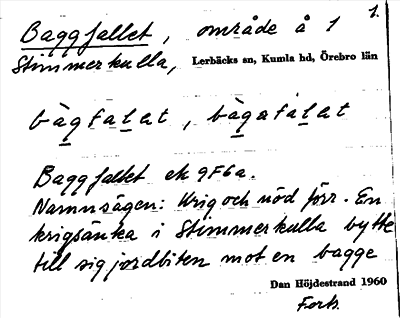 1.
Baggfallet, område å 1
Stimmerkulla, Lerbäcks sn, Kumla hd, Örebro län
bàgfalat, bàgafàlat
Baggfallet ek 9F6a.
Namnsägen: Krig och nöd förr. En
krigsänka i Stimmerkulla bytte
till sig jordbiten mot en bagge
Dan Höjdestrand 1960
Forts.